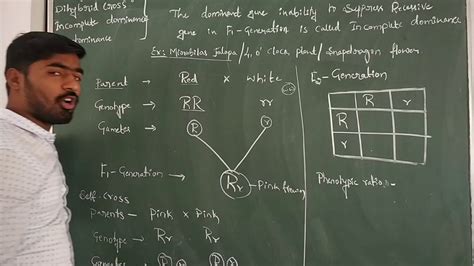 Dihybrid Cross
Incomplete dominance
dominance
The dominant gene inability to Suppress Recessive
gene in F1-Generation is called Incomplete dominance
Ex: Mirabilas Jalapa/4,o' clock plant/Snapdragon flower
Parent → Red × white
Genotype → RR rr
Gametes → R r
F1-Generation → Rr - Pink flower
Self-Cross
Parents - Pink × Pink
Genotype → Rr Rr
Gametes R r R r
F2-Generation
R r
R
r
Phenotypic ratio:-